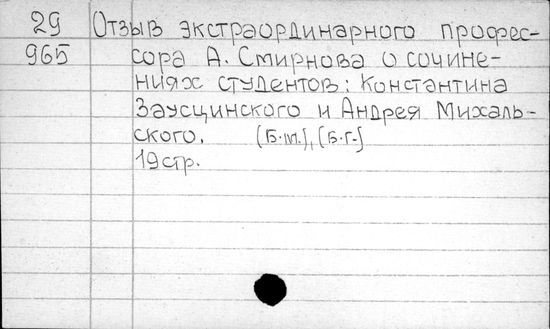 29 Отзыв экстраординарного профес-
965 сора А. Смирнова о сочине-
ниях студентов: Константина
Заусцинского и Андрея Михаль-
ского. [Б.м.], [Б.г.]
19 стр.